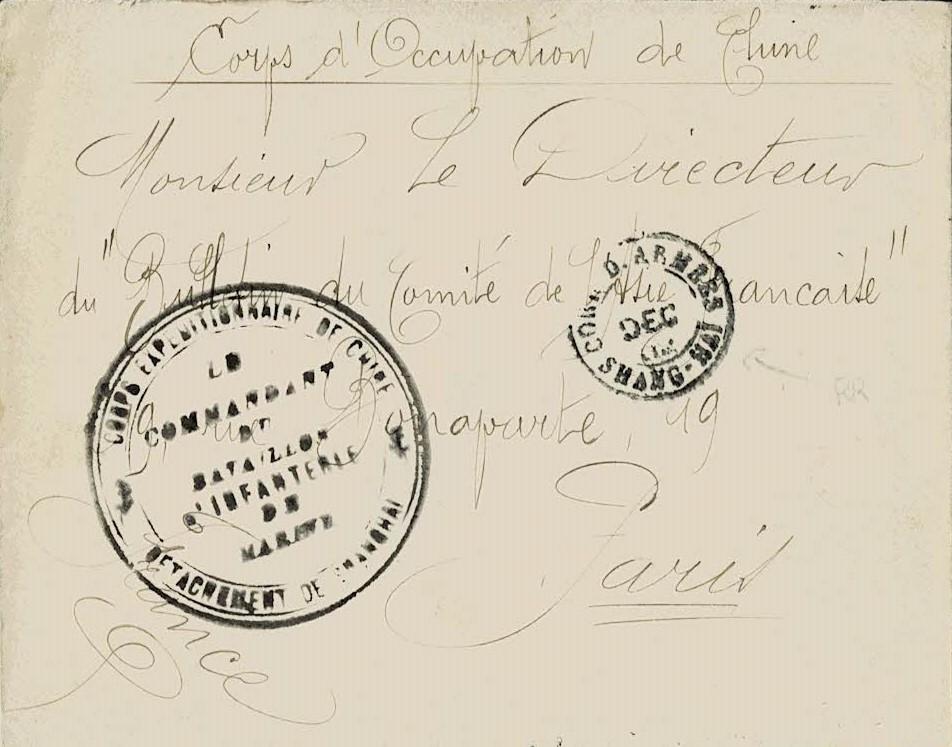 Corps d'Occupation de Chine
Monsieur Le Directeur
du "Bulletin du Comité de l'Asie Francaise"
19, rue Bonaparte, 19
Paris
France
CORPS EXPEDITIONNAIRE DE CHINE
LE
COMMANDANT
DU
BATAILLON
D'INFANTERIE
DE
MARINE
DETACHEMENT DE SHANGHAI
CORR. D. ARMEES
DEC
SHANG-HAI